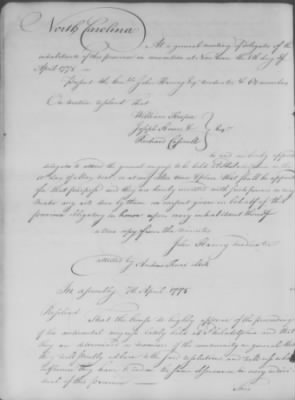 North Carolina
At a general meeting of delegates of the
inhabitants of this province in convention at New Bern the 5th day of
April 1775
Present the honble John Harvey Esqr moderator &
On motion resolved that
William Hooper
Joseph Hewes & Esqrs
Richard Caswell
be and are hereby appointed
delegates to attend the general congress to be held at Philadelphia on the
10th day of May next or at any other time & place that shall be appointed
for that purpose and they are hereby invested with such powers as may
make any acts done by them in
behalf of this
province obligatory in honor upon every inhabitant thereof
a true copy from the minutes
John Harvey moderator
attested by Andrew Knox clerk
In assembly 7th April 1775
Resolved
that the house do highly approve of the proceedings
of the continental congress lately held at Philadelphia and that
they are determined as members of the community in general that
they will strictly adhere to the said resolutions and will use what
influence they have to induce the same observance in every individ
ual of this province